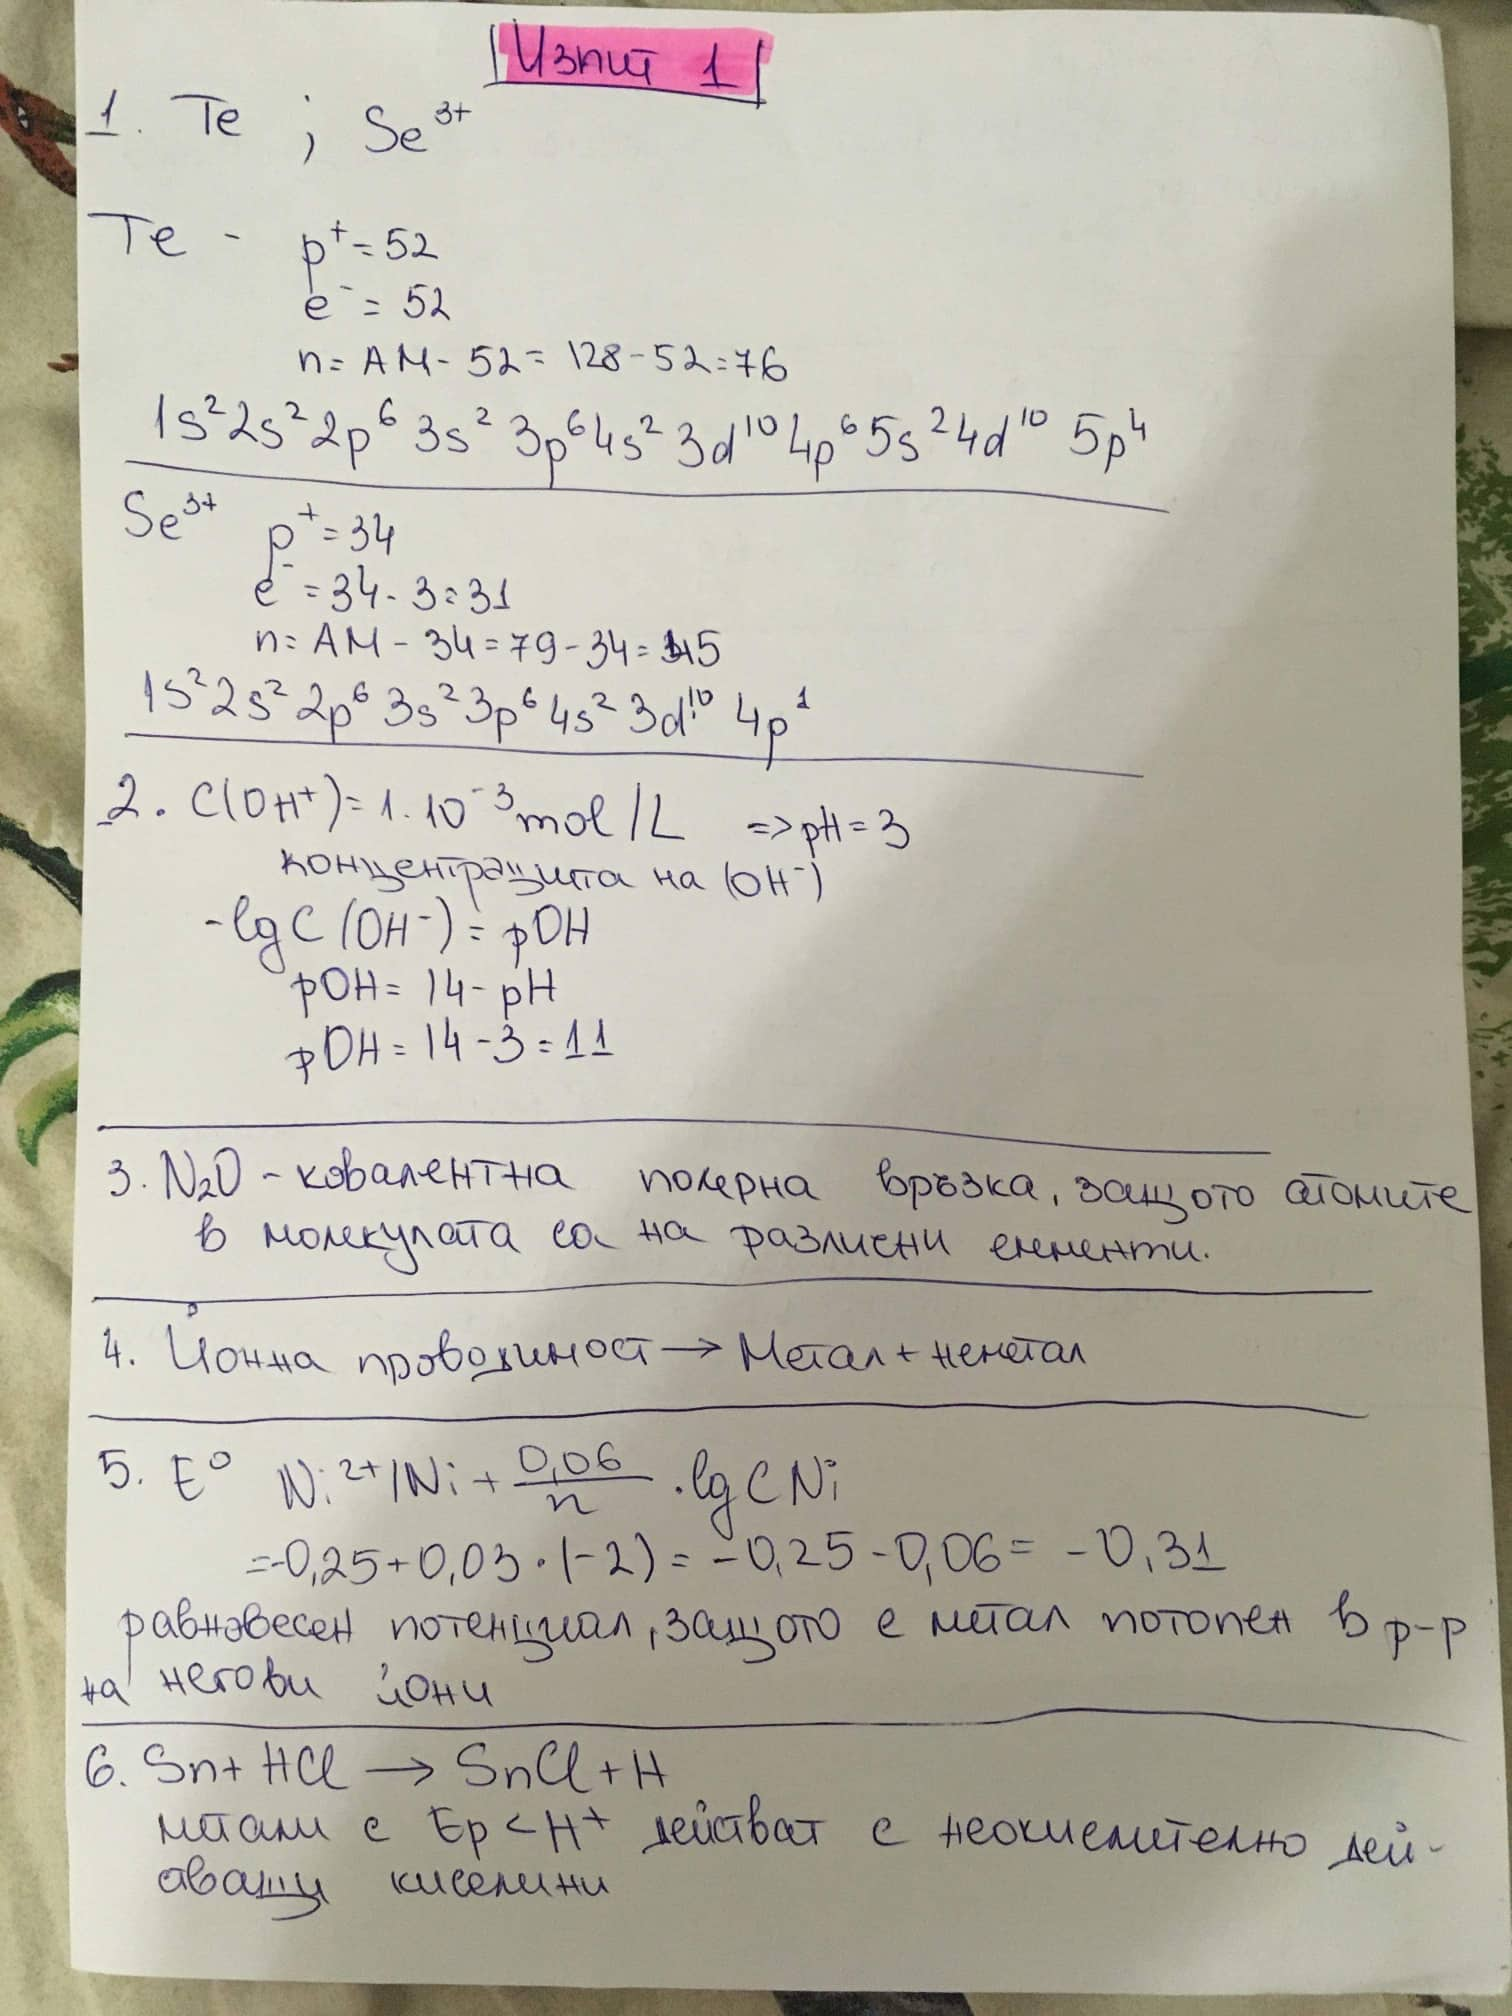 Изпит 1
1. Te ; Se³⁺
Te - p⁺ = 52
e⁻ = 52
n = AM - 52 = 128 - 52 = 76
1s² 2s² 2p⁶ 3s² 3p⁶ 4s² 3d¹⁰ 4p⁶ 5s² 4d¹⁰ 5p⁴
Se³⁺ p⁺ = 34
e⁻ = 34 - 3 = 31
n = AM - 34 = 79 - 34 = 45
1s² 2s² 2p⁶ 3s² 3p⁶ 4s² 3d¹⁰ 4p¹
2. C(OH⁺) = 1.10⁻³ mol/L => pH = 3
концентрацията на (OH⁻)
-lg C (OH⁻) = pOH
pOH = 14 - pH
pOH = 14 - 3 = 11
3. N₂O - ковалентна полярна връзка, защото атомите
в молекулата са на различни елементи.
4. Йонна проводимост → Метал + неметал
5. E⁰ Ni²⁺/Ni + 0,06/n . lg C Ni
= -0,25 + 0,03 . (-2) = -0,25 - 0,06 = -0,31
равновесен потенциал, защото е метал потопен в р-р
на негови йони
6. Sn + HCl → SnCl + H
метали с Ep < H⁺ действат с неокислително дей-
стващи киселини